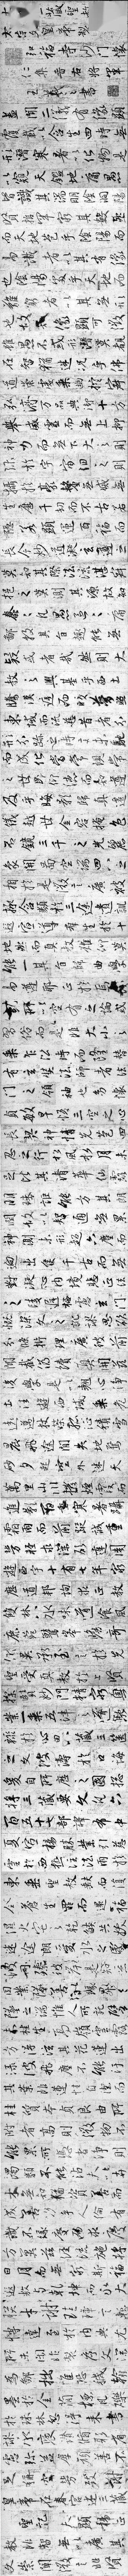 大唐三藏聖教序
太宗文皇帝製
弘福寺沙門懷
仁集晉右將軍
王羲之書
蓋聞二儀有像顯
覆載以含生四時無
形潛寒暑以化物是
以窺天鑑地庸愚
皆識其端明陰洞陽
賢哲罕窮其數然
而天地苞乎陰陽
而易識者以其有像
也陰陽處乎天地而
難窮者以其無形
也故知像顯可徵
雖愚不惑形潛莫覩
在智猶迷況乎佛
道崇虛乘幽控寂
弘濟萬品典御十方
舉威靈而無上抑
神力而無下大之則
彌於宇宙細之則
攝於毫釐無滅無
生歷千劫而不古若
隱若顯運百福而
長今妙道凝玄遵之
莫知其際法流湛寂
挹之莫測其源故知
蠢蠢凡愚區區庸
鄙投其旨趣能無
疑或者哉然則大
教之興基乎西土
騰漢庭而皎夢照
東域而流慈昔者分
形分跡之時言未馳
而成化當常現常
之世民仰德而知遵
及乎晦影歸真遷
儀越世金容掩色
不鏡三千之光麗
象開圖空端四八之
相於是微言廣被
拯含類於三途遺訓
遐宣導群生於十
地然而真教難仰莫
能一其旨歸曲學
易遵邪正於焉紛
糾所以空有之論或
習俗而是非大小之
乘乍沿時而隆替
有玄奘法師者法
門之領袖也幼懷
貞敏早悟三空之心
長契神情先苞四
忍之行松風水月未
足比其清華仙露
明珠詎能方其朗
潤故以智通無累
神測未形超六塵而
迥出隻千古而無
對凝心內境悲正法
之陵遲栖慮玄門
慨深文之訛謬思欲
分條析理廣彼前
聞截偽續真開茲
後學是以翹心淨
土往遊西域乘危
遠邁杖策孤征積雪
晨飛途閒失地驚
砂夕起空外迷天
萬里山川撥煙霞而
進影百重寒暑躡
霜雨而前蹤誠重
勞輕求深願達周
遊西宇十有七年窮
歷道邦詢求正教
雙林八水味道飡風
鹿苑鷲峰瞻奇
仰異承至言於先
聖受真教於上賢
探賾妙門精窮奧
業一乘五律之道馳
驟於心田八藏三篋
之文波濤於口海
爰自所歷之國總
將三藏要文凡六
百五十七部譯布中
夏宣揚勝業引慈
雲於西極注法雨於
東垂聖教缺而復
全蒼生罪而還福
濕火宅之乾焰共拔
迷途朗愛水之昏
波同臻彼岸是知惡
因業墜善以緣昇
昇墜之端惟人所託譬
夫桂生高嶺零露
方得泫其花蓮出
淥波飛塵不能汙
其葉非蓮性自潔而
桂質本貞良由所
附者高則微物不
能累所憑者淨則
濁類不能沾夫以卉
木無知猶資善而
成善況乎人倫有
識不緣慶而求慶
方冀茲經流施將
日月而無窮斯福
遐敷與乾坤而永大
朕才謝珪璋言慚
博達至於內典尤
所未閑昨製序文深
為鄙拙唯恐穢翰
墨於金簡標瓦礫
於珠林忽得來書
謬承褒讚循躬省
慮彌益厚顏善不
足稱空勞致謝
皇帝在春宮述三藏
聖記
夫顯揚正
教非智無以廣其
文崇闡微言非賢